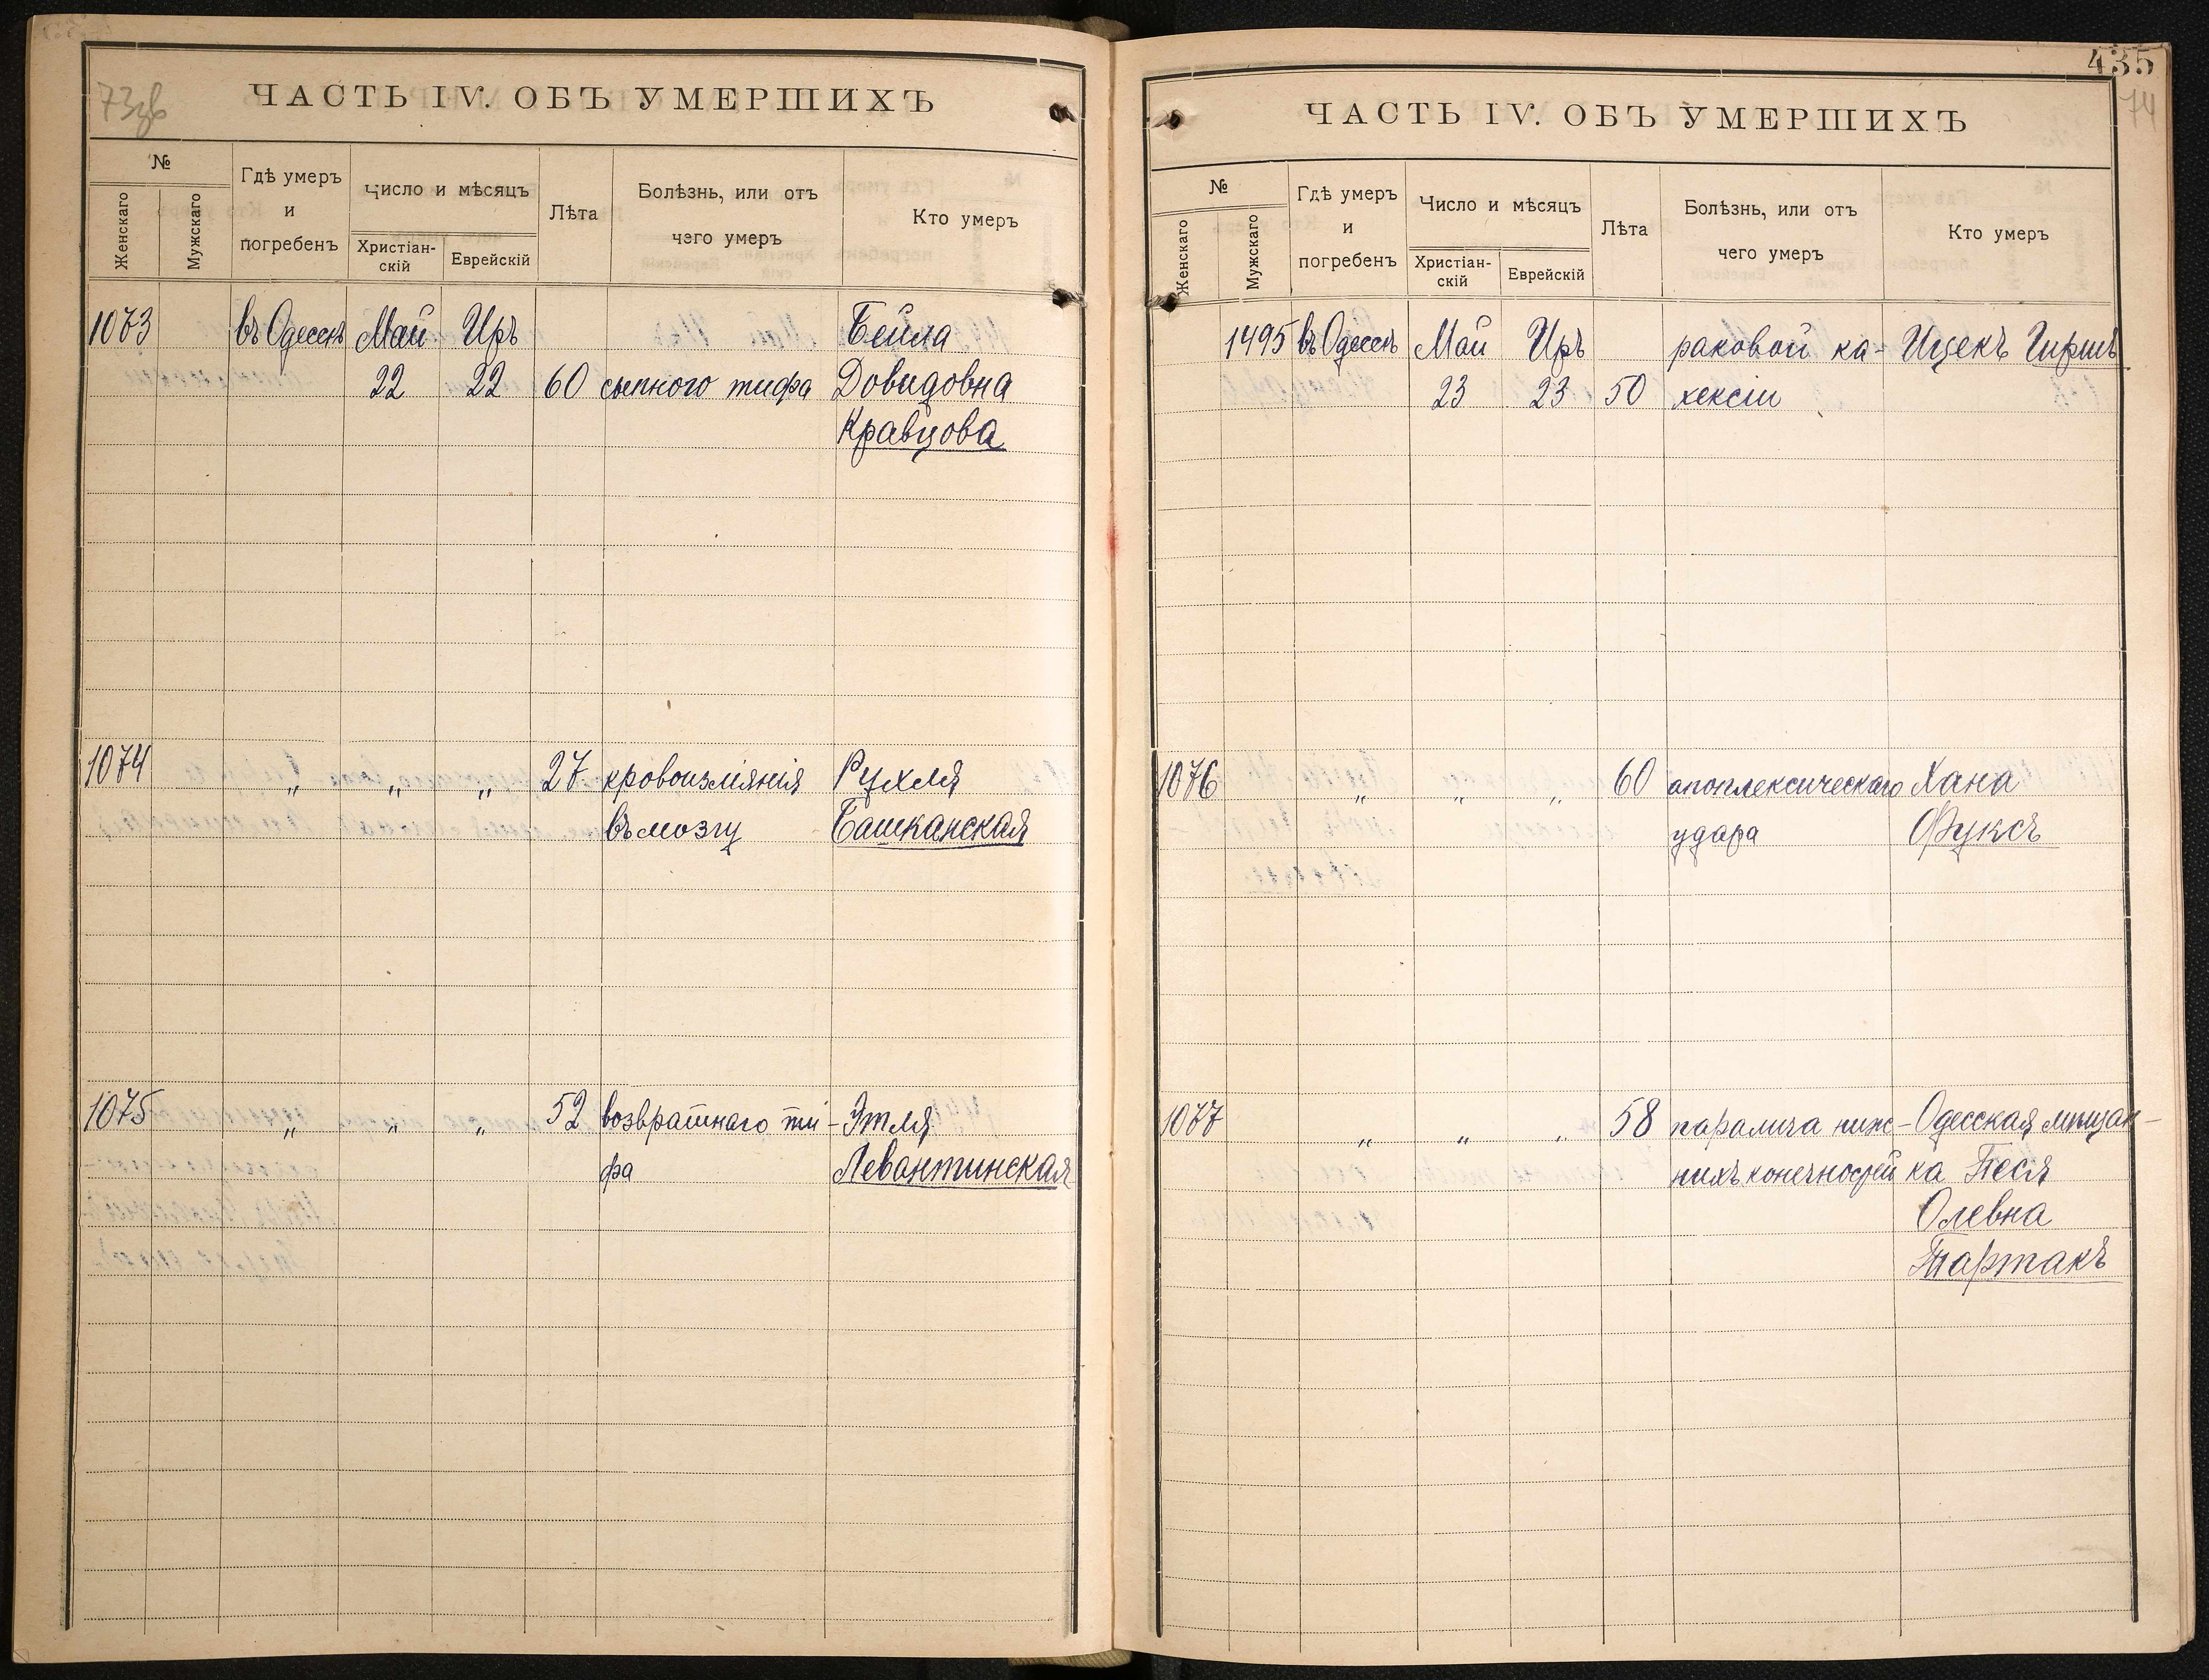 73об
ЧАСТЬ IV. ОБЪ УМЕРШИХЪ
№
Женскаго
Мужскаго
Гдѣ умеръ
и
погребенъ
Число и мѣсяцъ
Христіан-
скій
Еврейскій
Лѣта
Болѣзнь, или отъ
чего умеръ
Кто умеръ
1073 въ Одессѣ Май Иръ Бейла
22 22 60 сыпного тифа Довидовна
Кравцова
1074 „ „ „ 27 кровоизліянія Рухля
въ мозгу Башканская
1075 „ „ „ 52 возвратнаго ти- Этля
фа Левантинская
435
74
ЧАСТЬ IV. ОБЪ УМЕРШИХЪ
№
Женскаго
Мужскаго
Гдѣ умеръ
и
погребенъ
Число и мѣсяцъ
Христіан-
скій
Еврейскій
Лѣта
Болѣзнь, или отъ
чего умеръ
Кто умеръ
1495 въ Одессѣ Май Иръ раковой ка- Ицекъ Гиршъ
23 23 50 хексіи
1076 „ „ „ 60 апоплексическаго Хана
удара Фуксъ
1077 „ „ „ 58 паралича ниж- Одесская мѣщан-
нихъ конечностей ка Песя
Олевна
Тартакъ